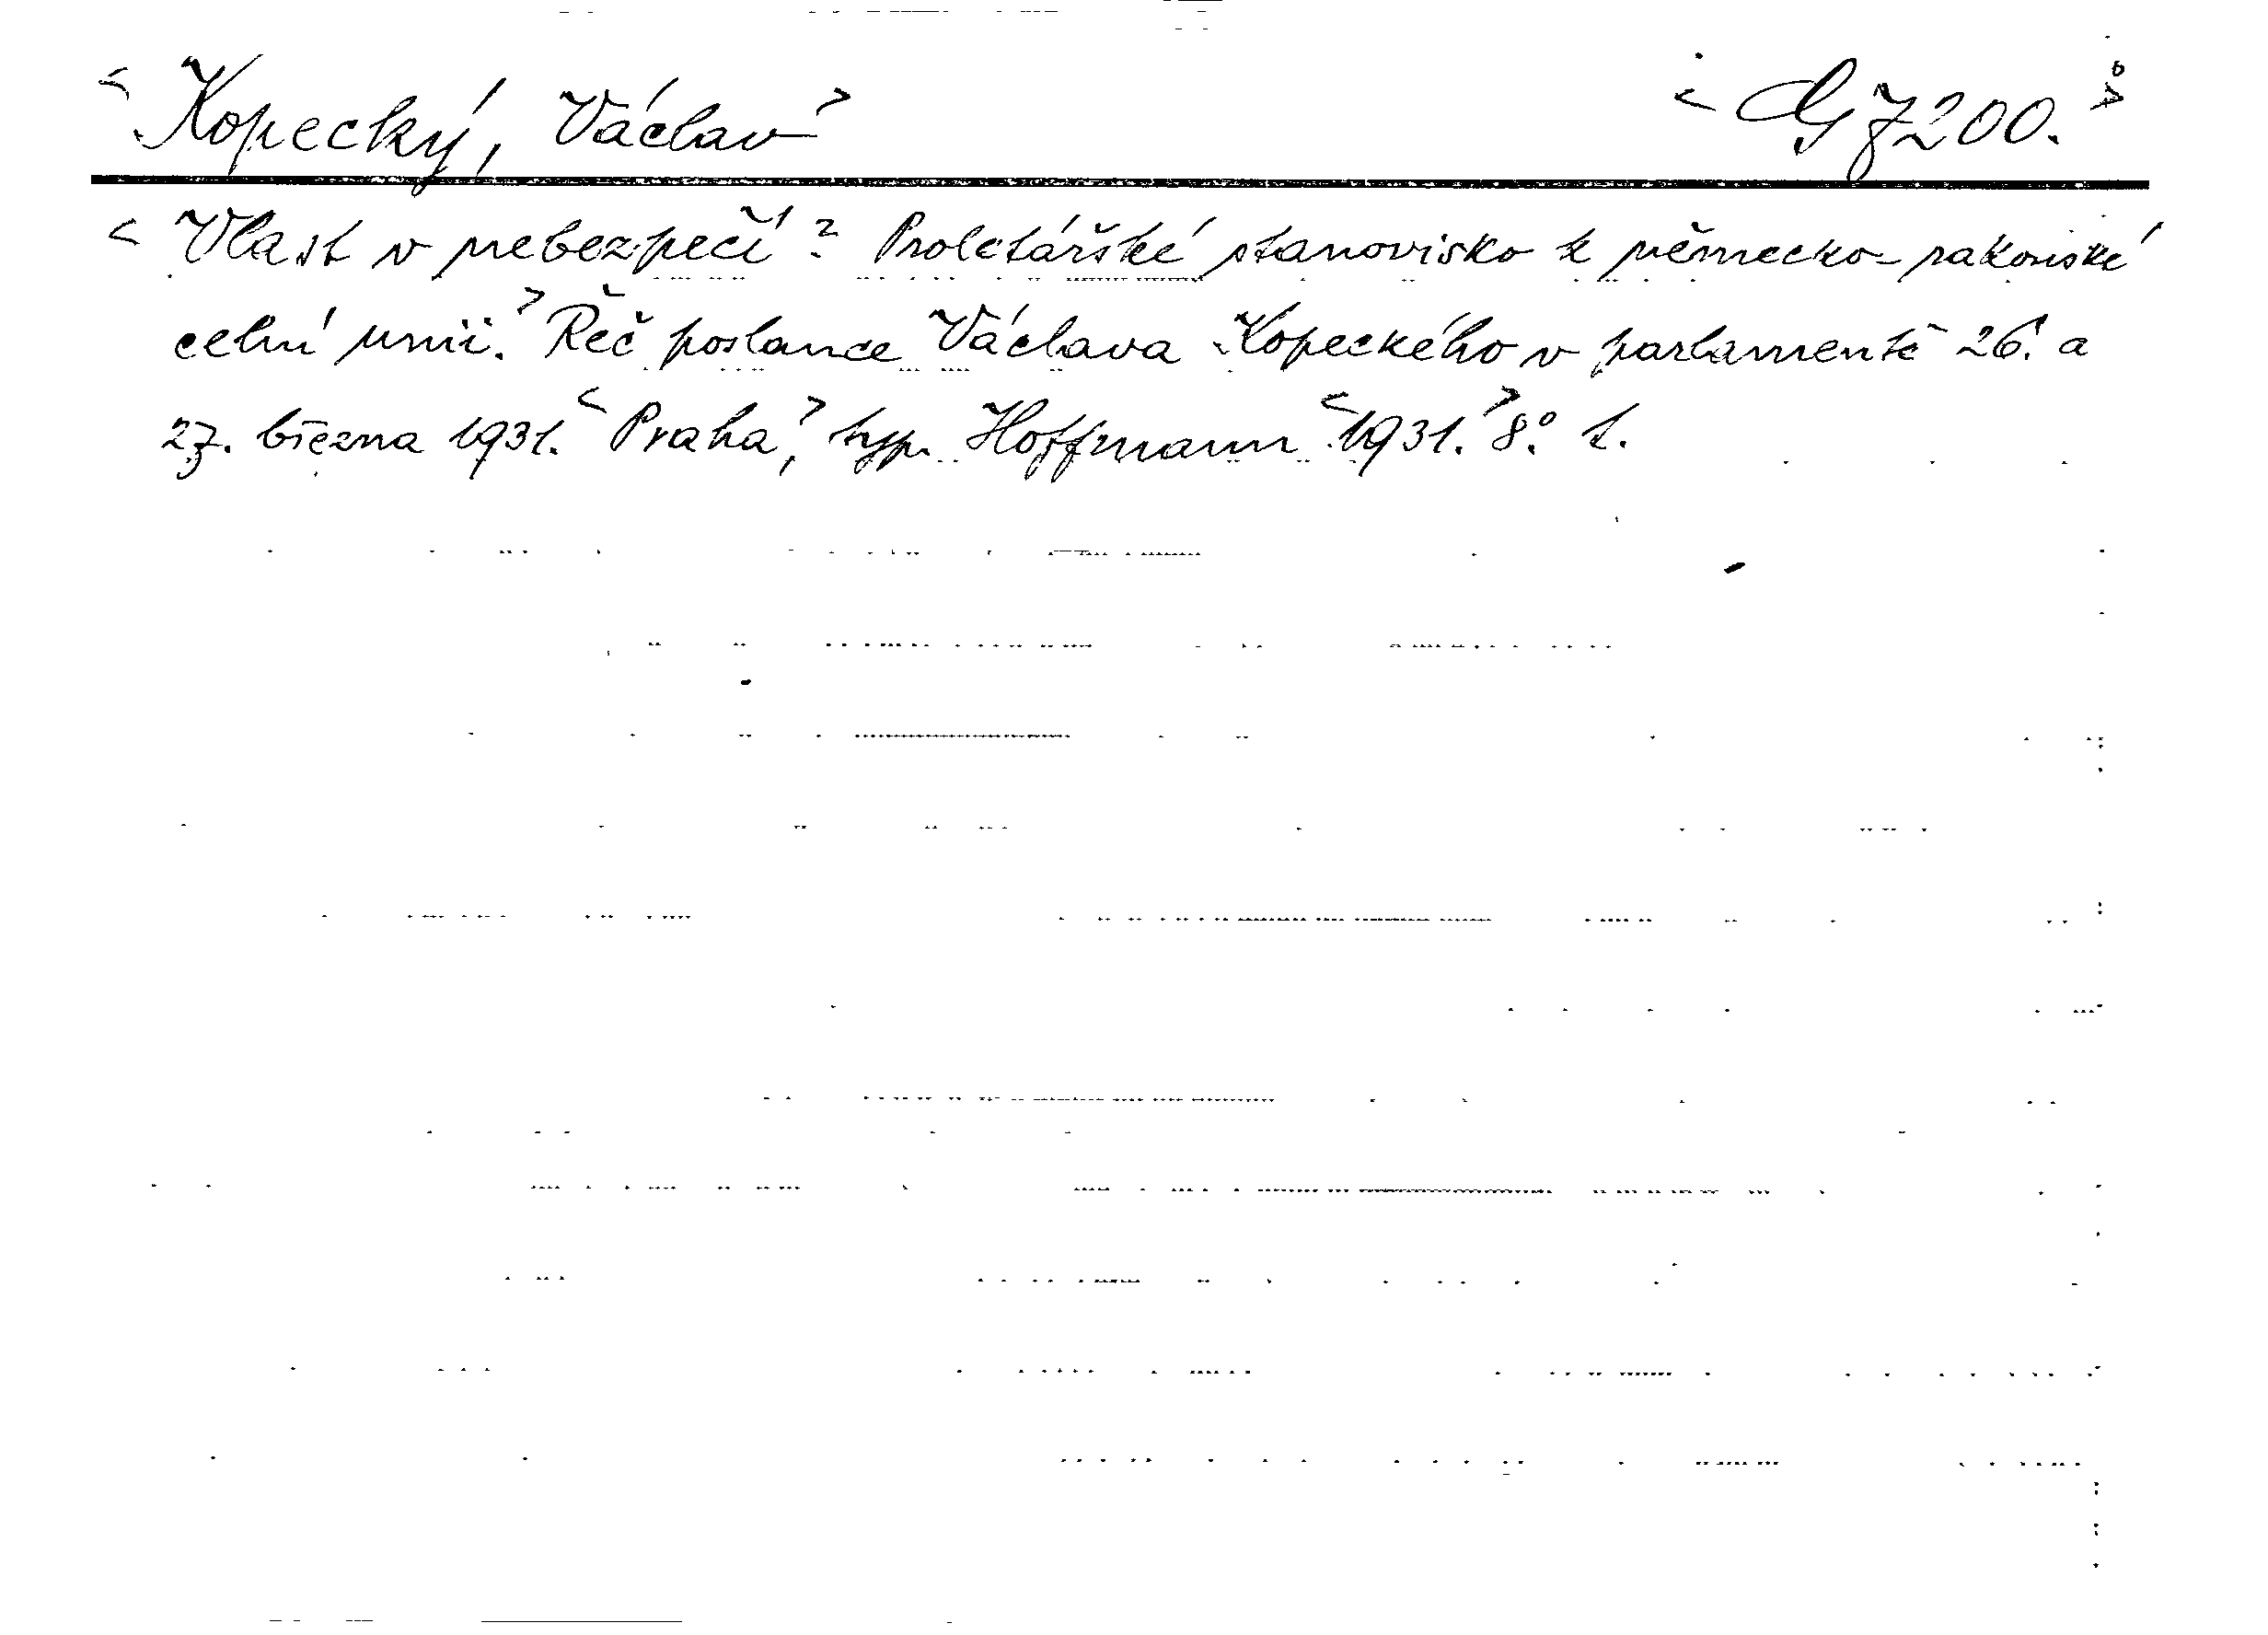 < Kopecký, Václav > < G 7200. >
< Vlast v nebezpečí? Proletářské stanovisko k německo-rakouské
celní unii. > Řeč poslance Václava Kopeckého v parlamentě 26. a
27. března 1931. < Praha, > typ. Hoffmann < 1931. > 8°. 1.